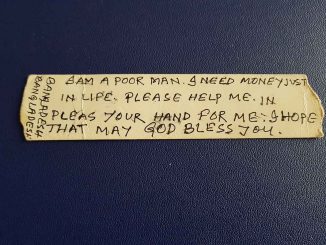 BANGLADESH
BANGLADESH
I AM A POOR MAN. I NEED MONEY JUST
IN LIFE. PLEASE HELP ME. IN
PLEAS YOUR HAND FOR ME. I HOPE
THAT MAY GOD BLESS YOU.